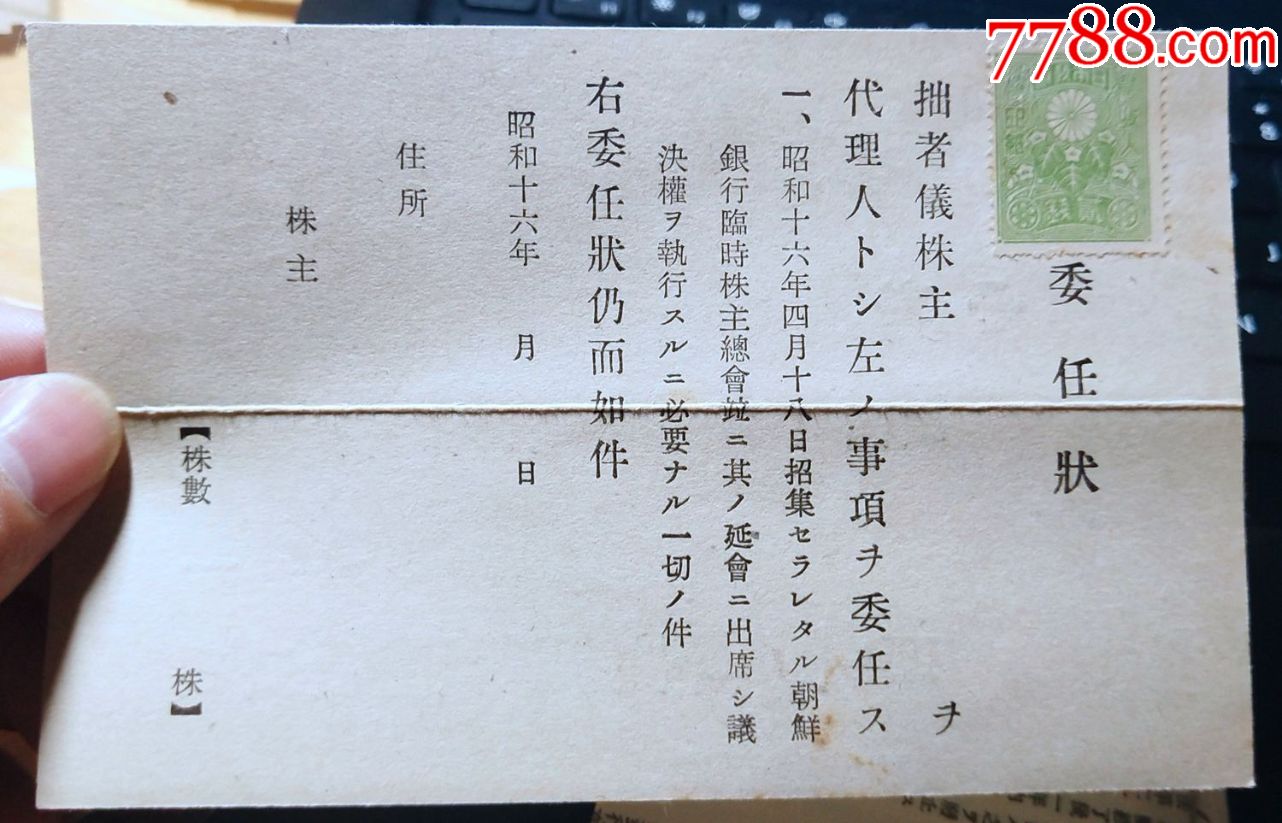 7788.com
委任狀
拙者儀株主 ヲ
代理人トシ左ノ事項ヲ委任ス
一、昭和十六年四月十八日招集セラレタル朝鮮
銀行臨時株主總會竝ニ其ノ延會ニ出席シ議
決權ヲ執行スルニ必要ナル一切ノ件
右委任狀仍而如件
昭和十六年 月 日
住所
株主
【株數 株】
貳錢